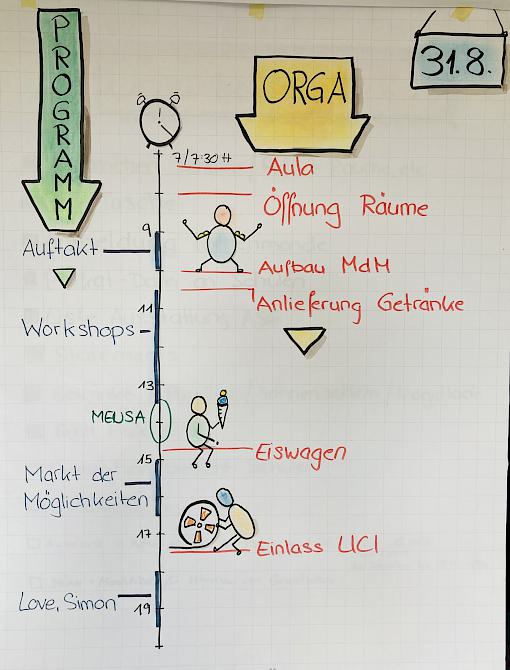 PROGRAMM
ORGA
31.8.
7/7:30 H
Aula
Öffnung Räume
9
Auftakt
Aufbau MdM
Anlieferung Getränke
11
Workshops
13
MENSA
15
Eiswagen
Markt der
Möglichkeiten
17
Einlass UCI
Love, Simon
19